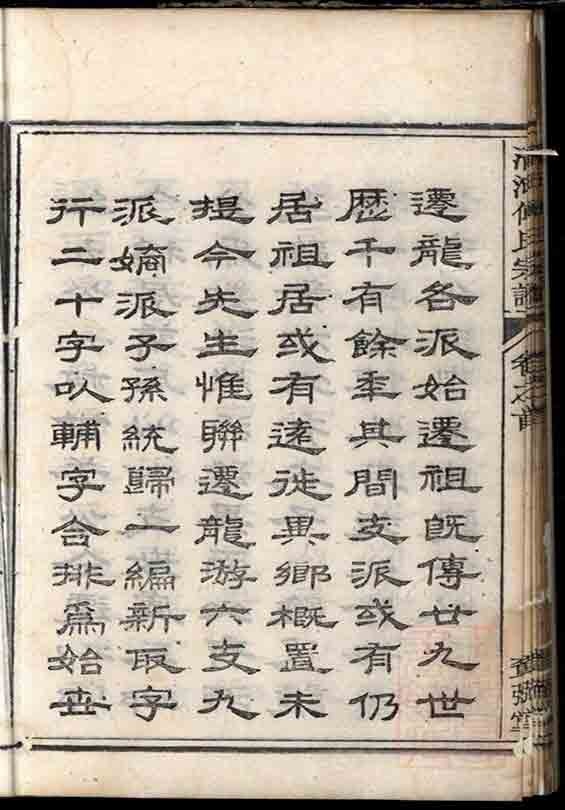 遷龍各派始遷祖旣傳廿九世
歷千有餘年其間支派或有仍
居祖居或有遠徙異鄉概置未
提今先生惟聯遷龍游六支九
派嫡派子孫統歸一編新取字
行二十字以輔字合排爲始世
傅氏宗譜
卷之首